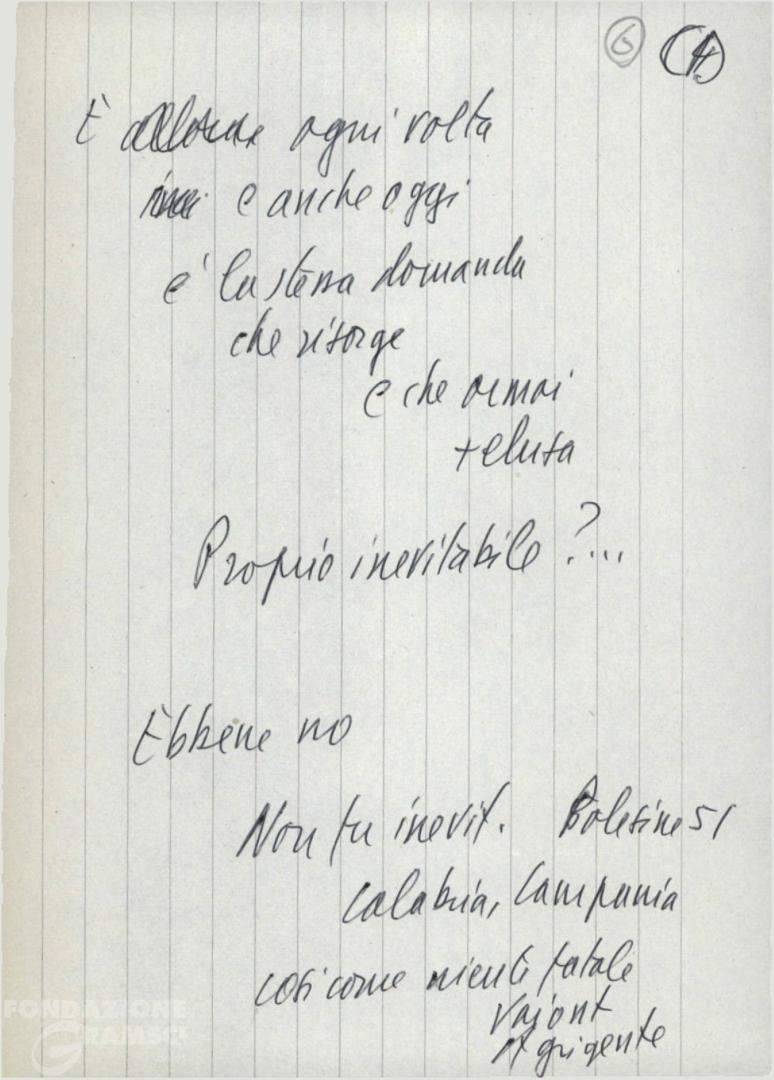 6 (4)
È allora ogni volta
e anche oggi
e' la stessa domanda
che risorge
e che ormai
+ elusa
Proprio inevitabile ?...
Ebbene no
Non fu inevit. Polesine 51
Calabria, Campania
così come niente fatale
Vajont
Agrigento
FONDAZIONE
GRAMSCI